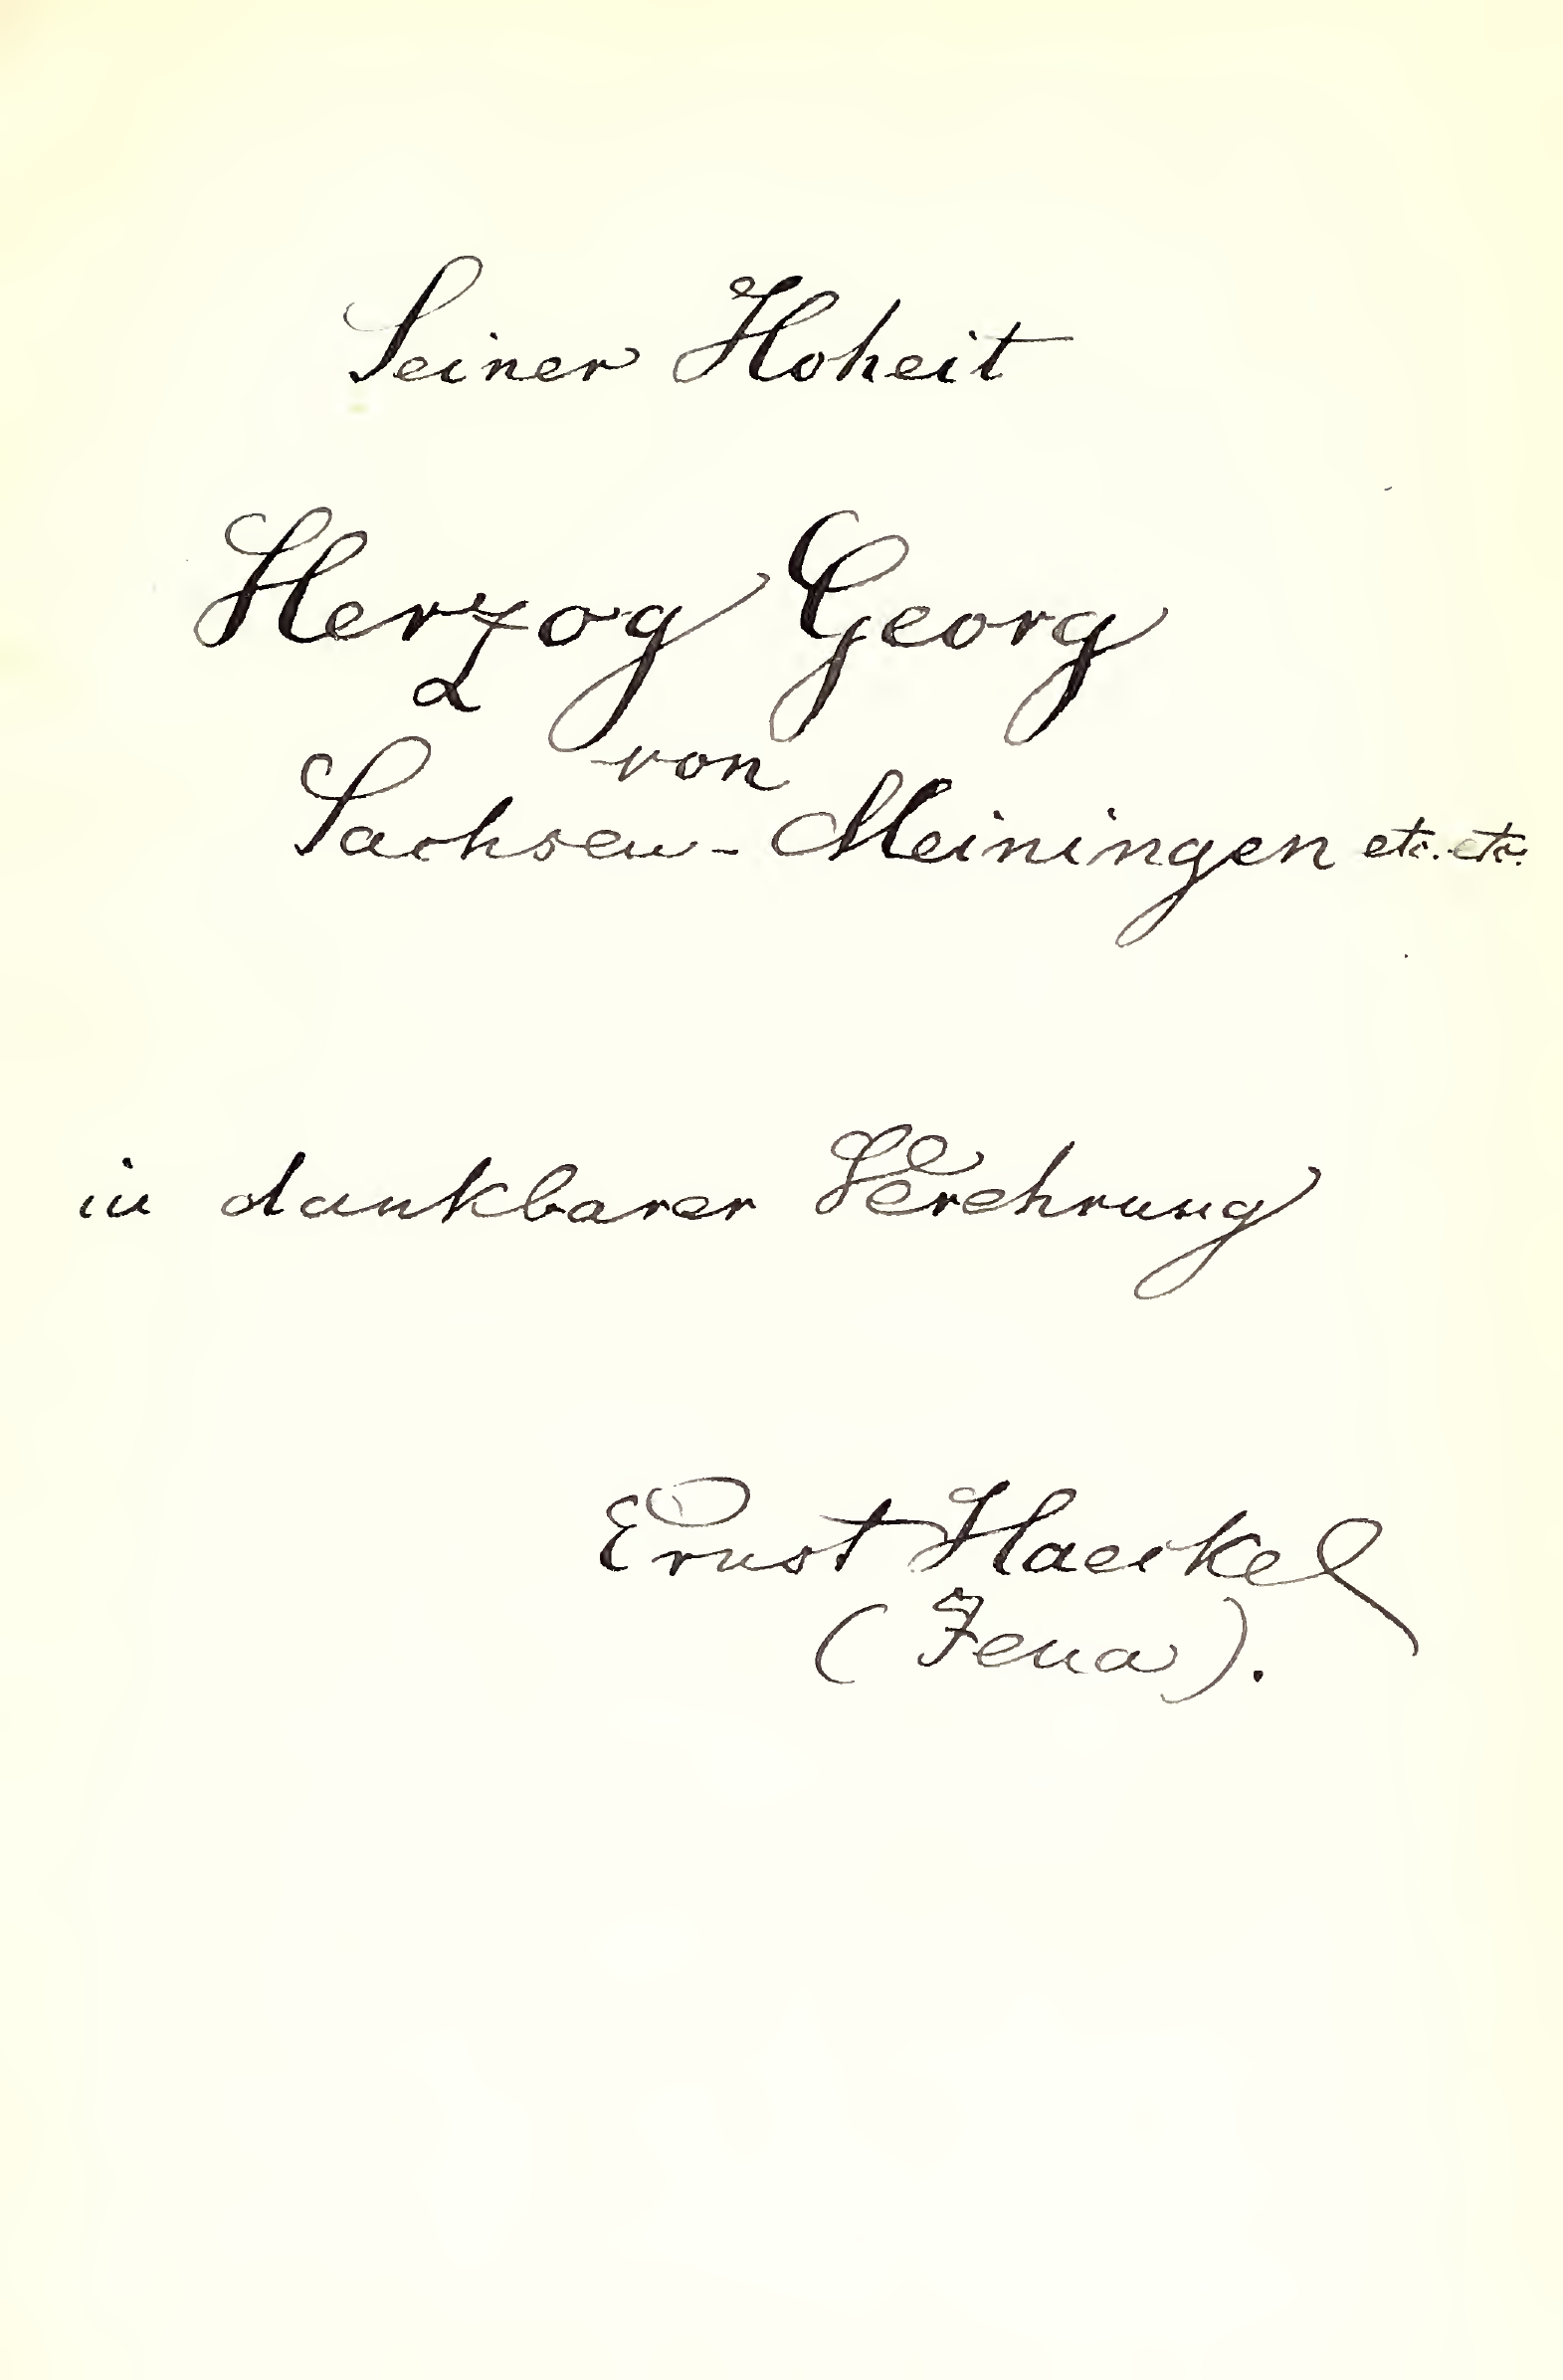 Seiner Hoheit
Herzog Georg
von
Sachsen-Meiningen etc. etc.
in dankbarer Verehrung
Ernst Haeckel
(Jena).